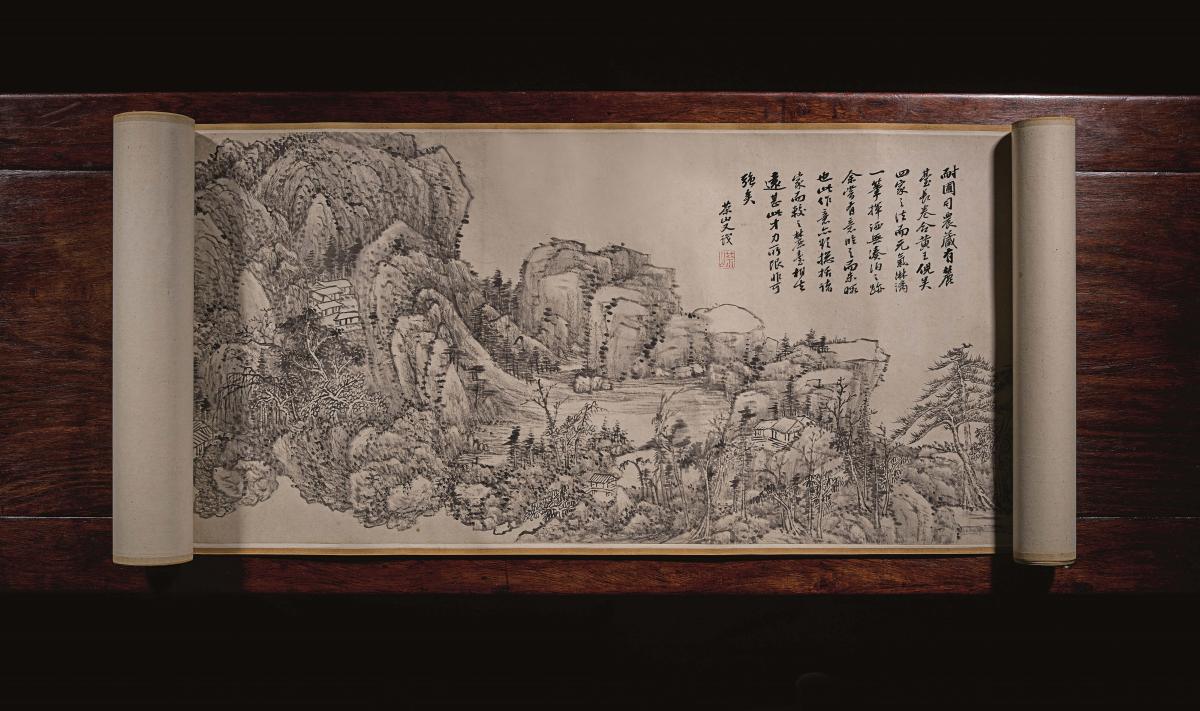 耐圃司農藏有麓
臺長卷合黄王倪吴
四家之法而元氣淋漓
一筆揮洒無湊泊之跡
余嘗有意臨之而未暇
也此作意亦欲摠括諸
家而較之麓臺相去
遠甚此才力所限非可
強矣
茶山又識